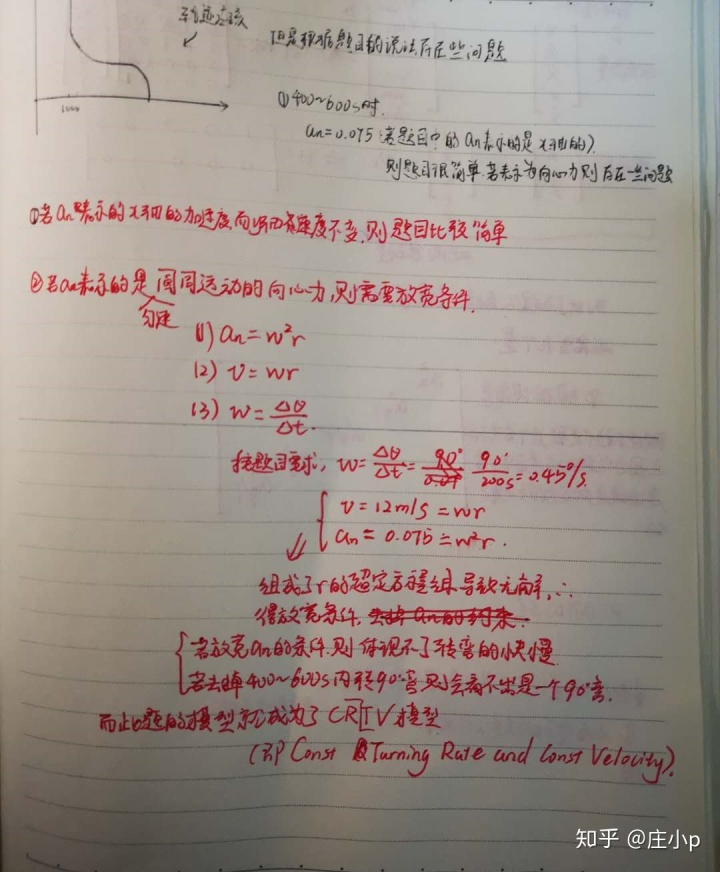 轨迹应该
但是根据题目的说法存在些问题
1000
① 400~600s时.
an=0.075 (若题目中的an表示的是x轴的)
则题目很简单.若表示为向心力则存在一些问题
①若an表示的x轴的加速度,而y轴速度不变,则题目比较简单
②若an表示的是圆周运动的向心力,则需要放宽条件.
匀速
(1) an=w²r
(2) v=wr
(3) w=Δθ/Δt.
按题目要求, w=Δθ/Δt=90°/200s=0.45°/s.
v=12m/s=wr
an=0.075=w²r.
组成了r的超定方程组.导致无解,∴
得放宽条件, 去掉an的约束.
若放宽an的条件.则体现不了转弯的快慢
若去掉400~600s内转90°弯.则会看不出是一个90°弯.
而此题的模型就成为了CRTV模型
(即Const Turning Rate and Const Velocity).
知乎 @庄小p